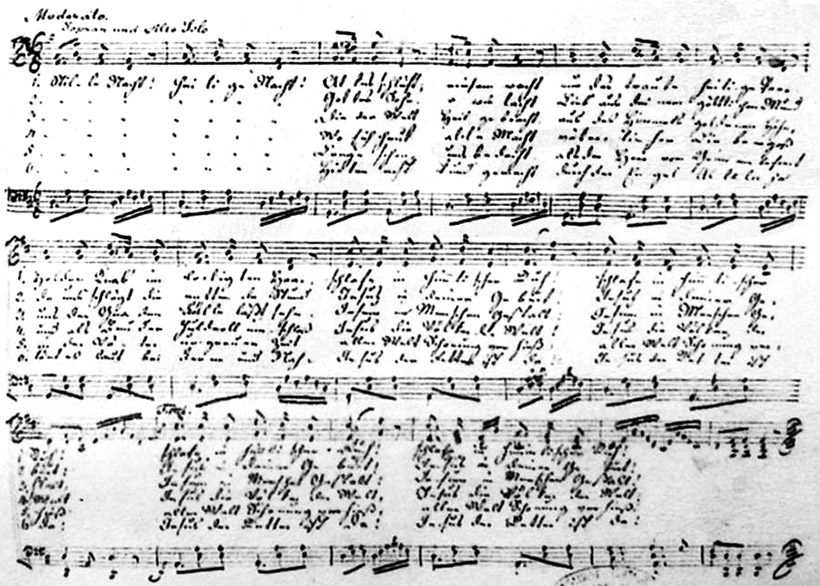 Moderato.
Sopran und Alto Solo
1. Stille Nacht! Heilige Nacht! Alles schläft; einsam wacht nur das traute heilige Paar.
2. Gottes Sohn! o wie lacht Lieb' aus deinem göttlichen Mund
3. Die der Welt Heil gebracht, aus des Himmels goldenen Höhn,
4. Wo sich heut alle Macht väterlicher Liebe ergoß
5. Lange schon uns bedacht, als der Herr vom Grimme befreit
6. Hirten erst kund gemacht durch der Engel Alleluja
1. Holder Knab' im lockigten Haar, schlafe in himmlischer Ruh! schlafe in himmlischer
2. Da uns schlägt die rettende Stund, Jesus in deiner Geburt! Jesus in deiner Ge-
3. Jesum in Menschengestalt! Jesum in Menschen Ge-
4. und als Bruder huldvoll umschloß Jesus die Völker der Welt! Jesus die Völker der
5. in der Väter urgrauer Zeit aller Welt Schonung verhieß! aller Welt Schonung ver-
6. Tönt es laut bei Ferne und Nah: Jesus der Retter ist da! Jesus der Retter ist
1. Ruh! schlafe in himmlischer Ruh! schlafe in himmlischer Ruh!
2. burt! Jesus in deiner Geburt! Jesus in deiner Geburt!
3. stalt! Jesum in Menschen Gestalt! Jesum in Menschen Gestalt!
4. Welt! Jesus die Völker der Welt! Jesus die Völker der Welt!
5. hieß! aller Welt Schonung verhieß! aller Welt Schonung verhieß!
6. da! Jesus der Retter ist da! Jesus der Retter ist da!